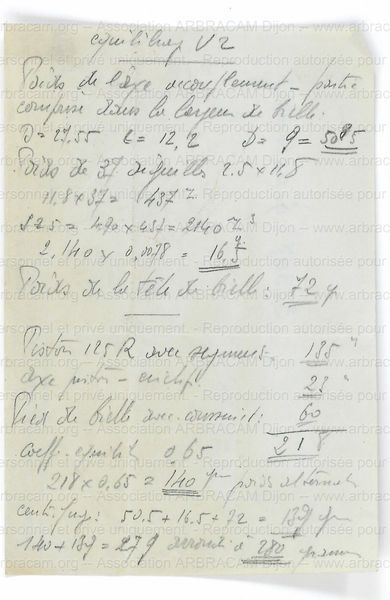 equilibrage V2
Poids de l'axe accouplement – partie
comprise dans la largeur de bielle.
D = 27,55 e = 12,2 = 50g5
Poids de 37 aiguilles 2.5 x 11,8
11.8 x 37 = 437
4.90 x 437 = 2140
2,140 x 0,0078 = 16,5 g
Poids de la tête de bielle : 72 g
Piston 125 R avec segments. 135 "
axe piston – 23 "
Pied de bielle avec coussinet : 60
218
coeff. equilib 0,65
218 x 0,65 = 140 gr poids alternatif
centrifuge : 50.5 + 16.5 + 72 = 139 gr
140 + 139 = 279 arrondi à 280 grammes
www.arbracam.org – Association ARBRACAM Dijon – www.arbracam.org
Reproduction autorisée pour usage personnel et privé uniquement